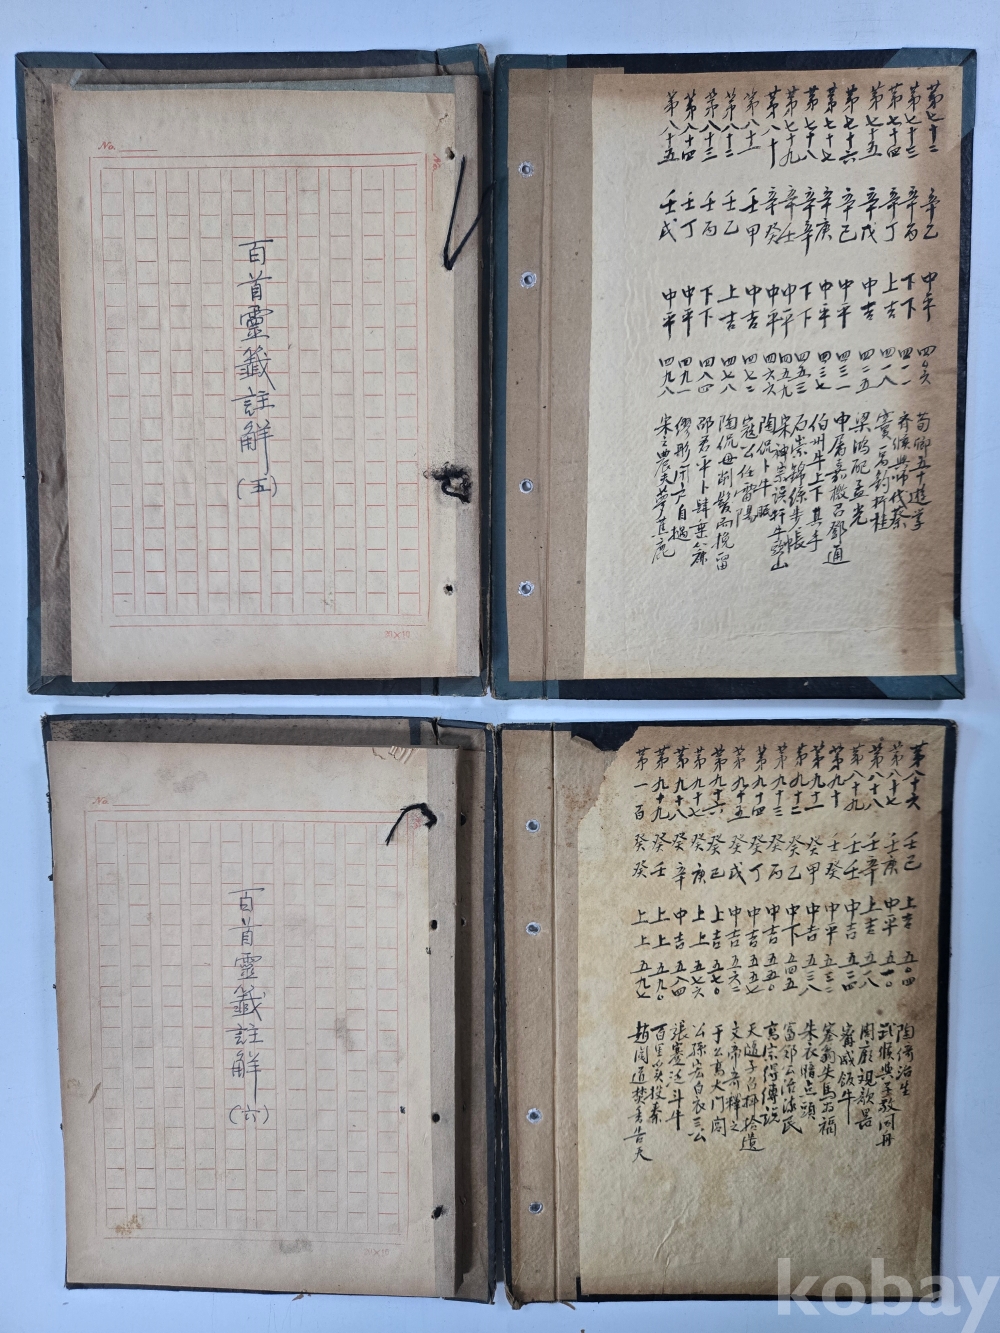 No.
百首靈籤註解
(五)
20×10
第七十二 辛乙 中平 四〇六 荀卿五十遊學
第七十三 辛丙 下下 四一一 齊侯興師伐蔡
第七十四 辛丁 上吉 四一八 竇禹鈞折桂
第七十五 辛戊 中吉 四二五 梁鴻配孟光
第七十六 辛己 中平 四三一 申屠嘉檄召鄧通
第七十七 辛庚 中平 四三七 伯州犁上下其手
第七十八 辛辛 下下 四五三 石崇錦絲步帳
第七十九 辛壬 中平 四五九 宋神宗誤折牛頭山
第八十 辛癸 中平 四六六 陶侃卜牛眠
第八十一 壬甲 中吉 四七二 寇公任雷陽
第八十二 壬乙 上吉 四七八 陶侃母削髮而挽留
第八十三 壬丙 下下 四八四 邵君平卜肆棄
第八十四 壬丁 中平 四九一 繆彤閉戶自撾
第八十五 壬戊 中平 四九八 宋之農夫夢蕉鹿
No.
百首靈籤註解
(六)
20×10
第八十六 壬己 上吉 五〇四 陶齊治生
第八十七 壬庚 中平 五一〇 武侯興學教同丹
第八十八 壬辛 上吉 五一八 周廟觀欹器
第八十九 壬壬 中吉 五二四 甯戚飯牛
第九十 壬癸 中平 五三二 塞翁失馬為福
第九十一 癸甲 中吉 五三八 朱衣暗点頭
第九十二 癸乙 中下 五四五 富鄭公濟流民
第九十三 癸丙 中吉 五五〇 高宗得傅說
第九十四 癸丁 中吉 五五七 天隨子召拜拾遺
第九十五 癸戊 中吉 五六二 文帝齊釋之
第九十六 癸己 上吉 五七〇 于公高大門閭
第九十七 癸庚 上上 五七六 公孫宏白衣三公
第九十八 癸辛 中吉 五八四 張騫泛斗牛
第九十九 癸壬 上上 五九〇 百里奚投秦
第一百 癸癸 上上 五九七 趙閱道焚香告天
kobay